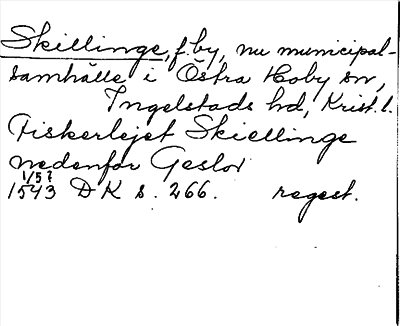 Skillinge, f. by, nu municipal-
samhälle i Östra Hoby sn,
Ingelstads hd, Krist. l.
Fiskerlejet Skiellinge
nedenfor Geslov
1/5 ?
1543 DK s. 266. regest.